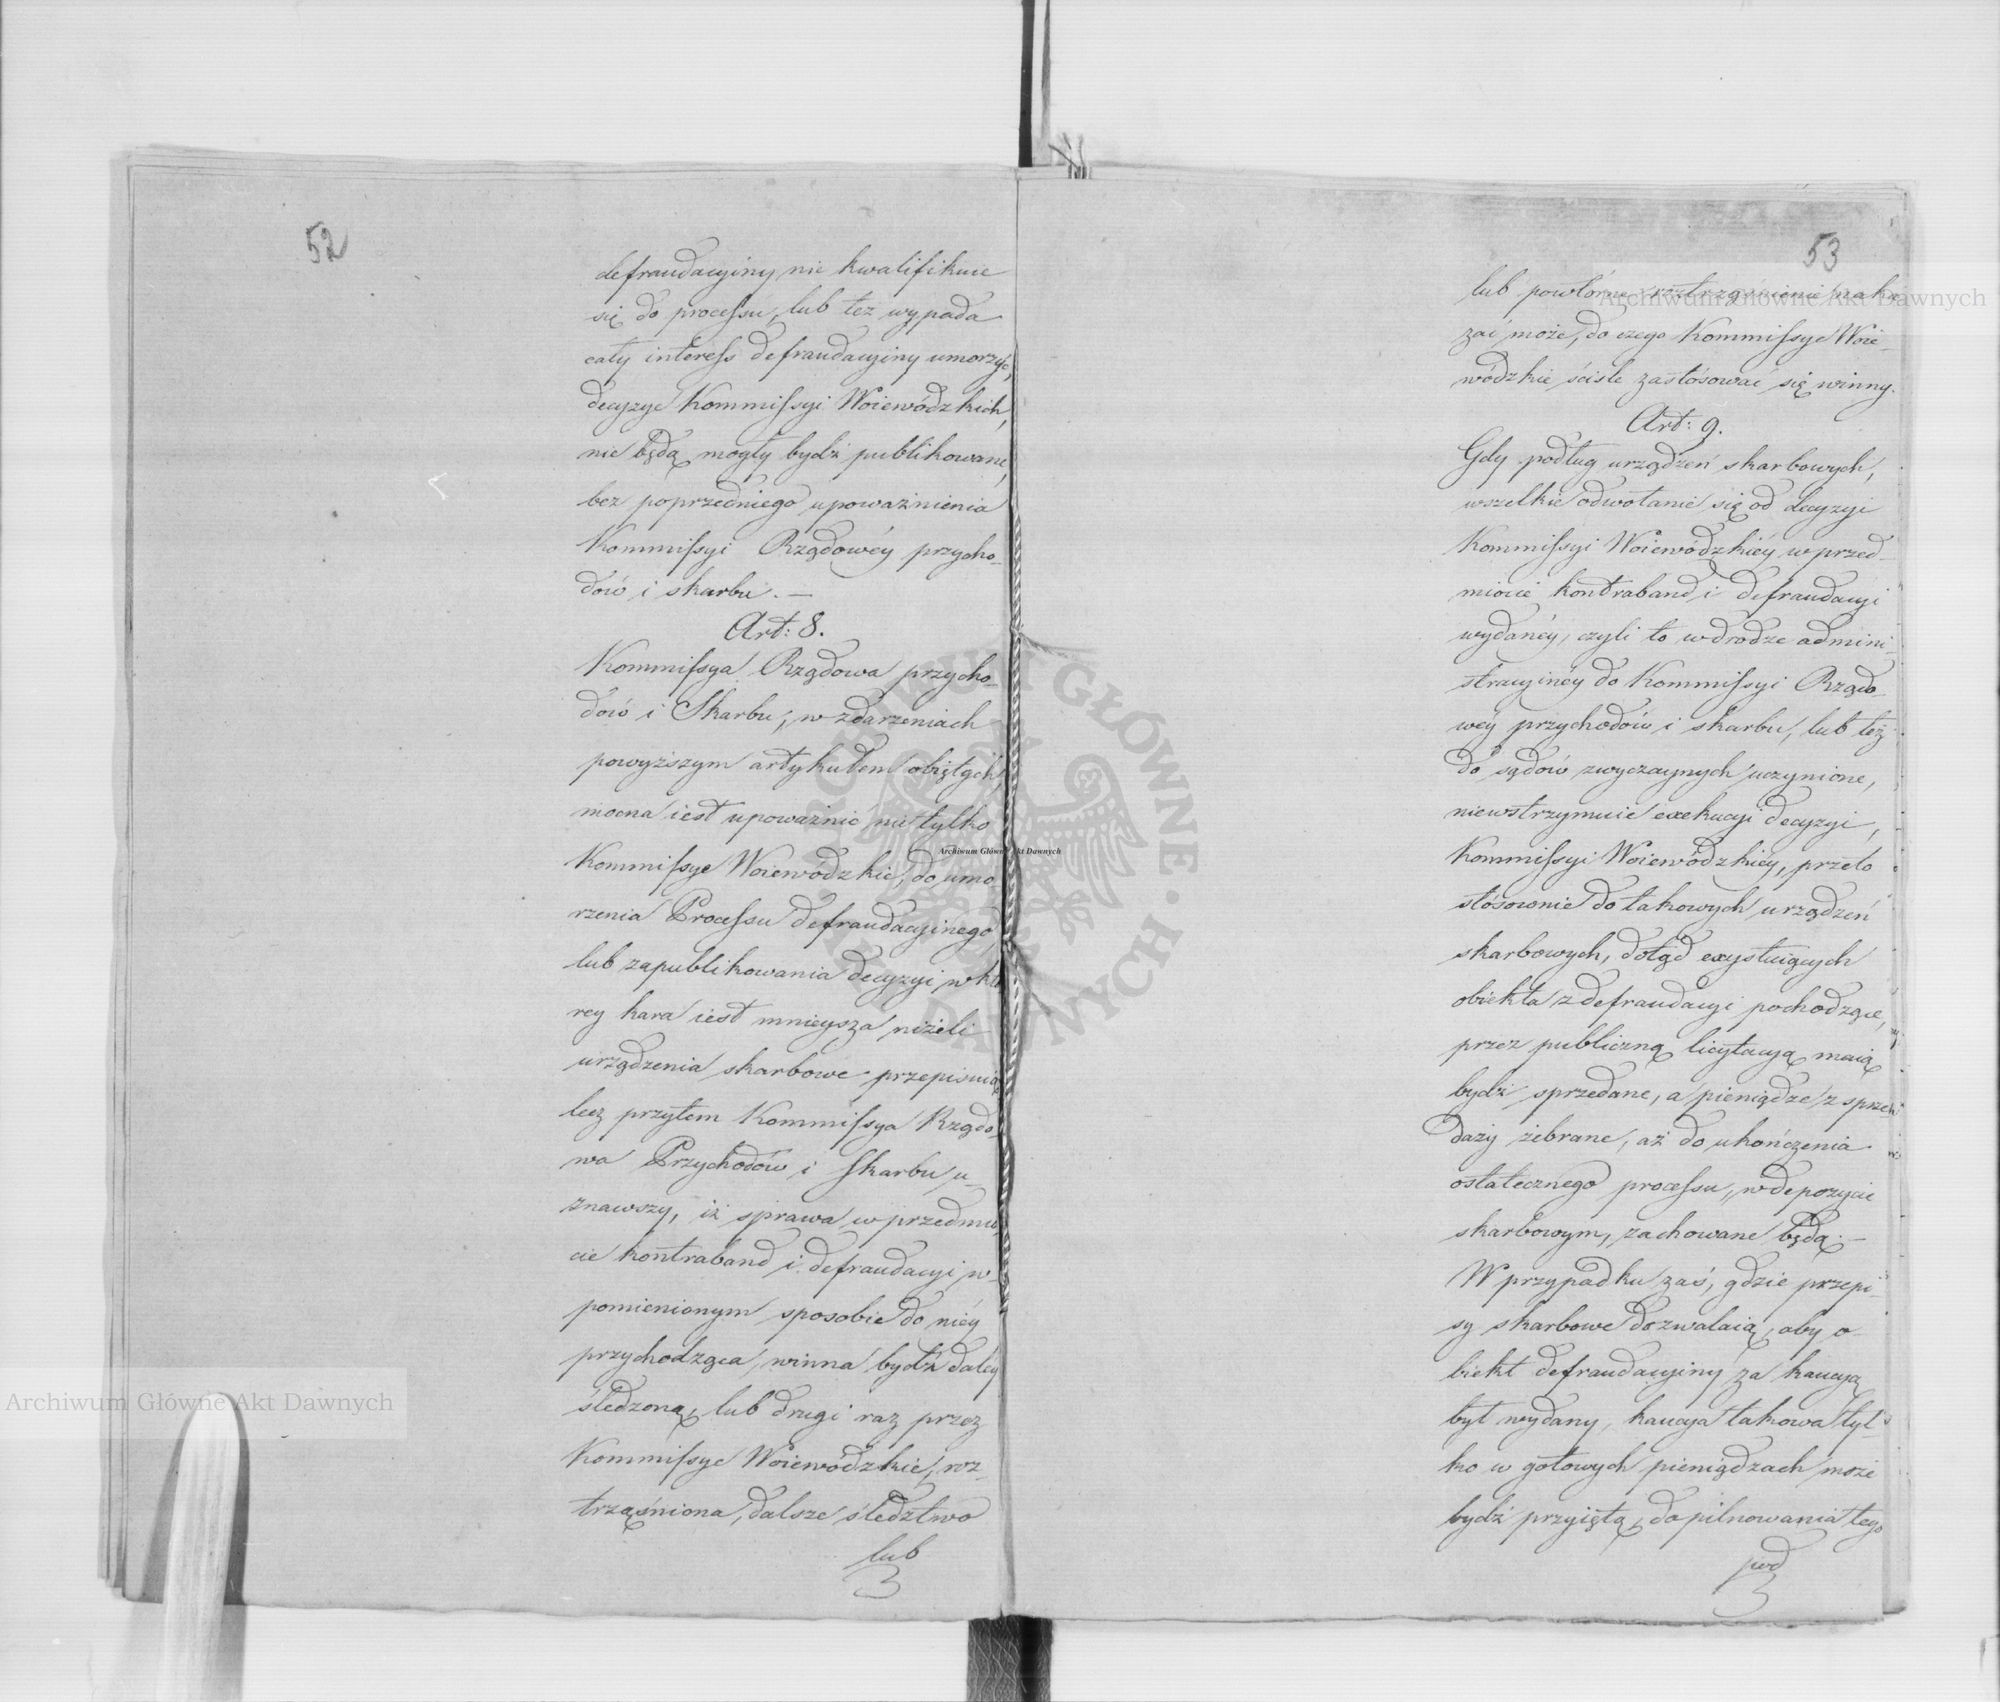 52
defraudacyiny nie kwalifikuie
się do processu, lub też wypada
cały interess defraudacyiny umorzyć,
decyzye Kommissyi Woiewódzkich,
nie będą mogły bydź publikowane,
bez poprzedniego upoważnienia
Kommissyi Rządowéy przycho-
dów i skarbu. —
Art: 8.
Kommissya Rządowa przycho-
dów i Skarbu, w zdarzeniach
powyższym artykułem obiętych,
mocna iest upoważnić nietylko
Kommissye Woiewódzkie, do umo-
rzenia Processu defraudacyinego,
lub zapublikowania decyzyi, w któ
rey kara iest mnieysza niżeli
urządzenia skarbowe przepisuią
lecz przytem Kommissya Rządo-
wa Przychodów i Skarbu u-
znawszy, iż sprawa w przedmio-
cie kontraband i defraudacyi w-
pomienionym sposobie do niéy
przychodząca, winna bydź daléy
śledzoną, lub drugi raz przez
Kommissye Woiewódzkie, roz-
trząśniona, dalsze śledztwo
lub
53
lub powtórne roztrząśnienie naka-
zać może, do czego Kommissye Woie-
wódzkie ściśle zastósować się winny.
Art: 9.
Gdy podług urządzeń skarbowych,
wszelkie odwołanie się od decyzyi
Kommissyi Woiewódzkiéy w przed-
miocie kontraband i defraudacyi
wydanéy, czyli to w drodze admini-
stracyinéy do Kommissyi Rządo-
wéy przychodów i skarbu, lub też
do sądów zwyczaynych uczynione,
niewstrzymuie exekucyi decyzyi,
Kommissyi Woiewódzkiéy, przeto
stósownie do takowych urządzeń
skarbowych, dotąd exystuiących
obiekta z defraudacyi pochodzące,
przez publiczną licytacyą maią
bydź sprzedane, a pieniądze z sprze-
daży zebrane, aż do ukończenia
ostatecznego processu, w depozycie
skarbowym, zachowane będą. —
W przypadku zaś, gdzie przepi-
sy skarbowe dozwalaią, aby o-
biekt defraudacyiny za kaucyą
był wydany, kaucya takowa tyl-
ko w gotowych pieniądzach może
bydź przyiętą, do pilnowania tego
pod
Archiwum Główne Akt Dawnych
Archiwum Główne Akt Dawnych
Archiwum Główne Akt Dawnych
ARCHIWUM GŁÓWNE AKT DAWNYCH